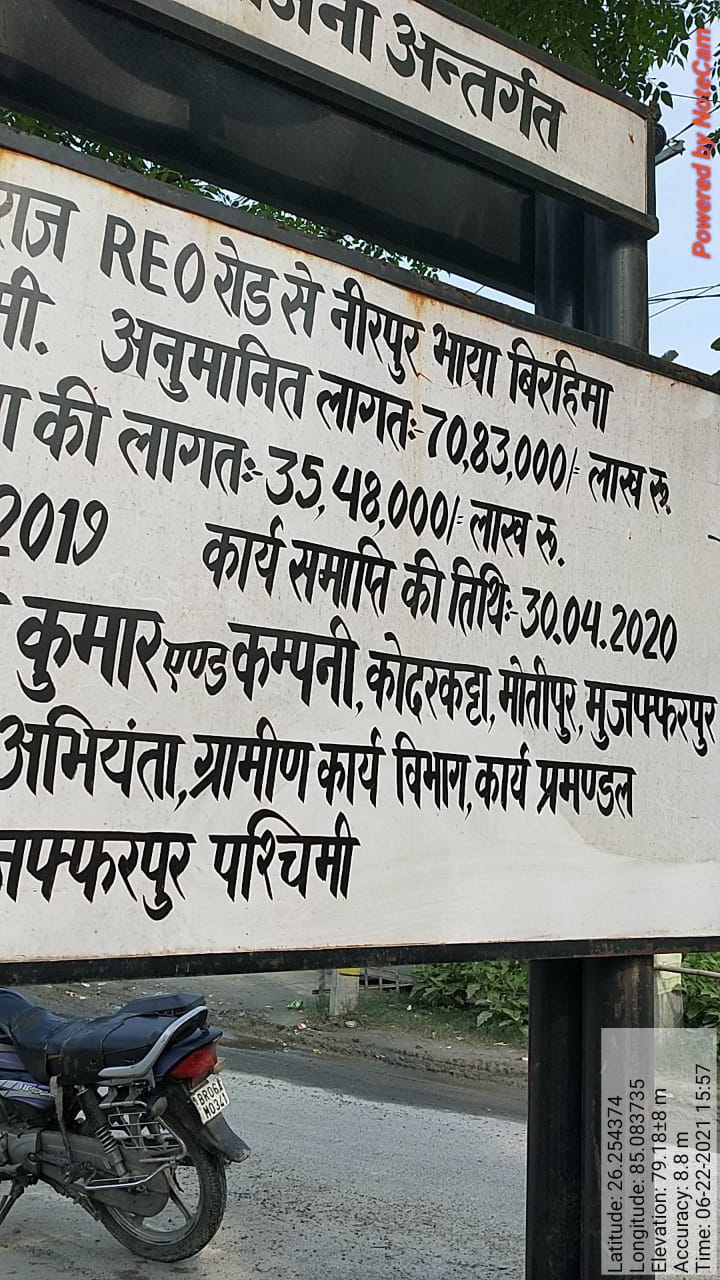 अन्तर्गत
REO रोड से नीरपुर भाया बिरहिमा
मी. अनुमानित लागतः- 70,83,000/= लाख रू.
की लागतः- 35,48,000/= लाख रू.
2019 कार्य समाप्ति की तिथिः- 30.04.2020
कुमार एण्ड कम्पनी, कोदरकट्टा, मोतीपुर, मुजफ्फरपुर
अभियंता, ग्रामीण कार्य विभाग, कार्य प्रमण्डल
जफ्फरपुर पश्चिमी
BR06A
M0341
Powered by NoteCam
Latitude: 26.254374
Longitude: 85.083735
Elevation: 79.18±8 m
Accuracy: 8.8 m
Time: 06-22-2021 15:57